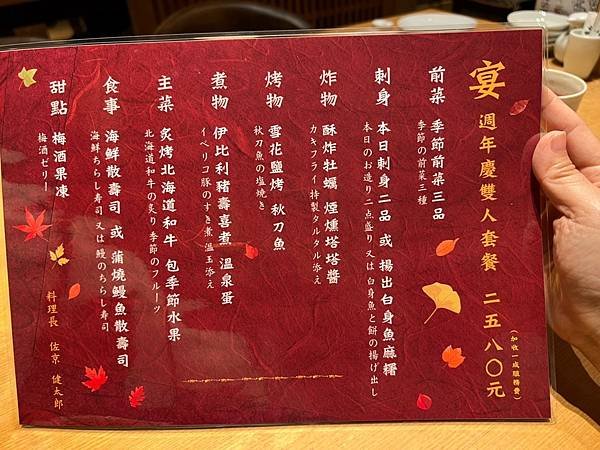 宴 週年慶雙人套餐 二五八〇元
(加收一成服務費)
前菜 季節前菜三品
季節の前菜三種
刺身 本日刺身二品 或 揚出白身魚麻糬
本日のお造り二点盛り 又は 白身魚と餅の揚げ出し
炸物 酥炸牡蠣 煙燻塔塔醬
カキフライ特製タルタル添え
烤物 雪花鹽烤 秋刀魚
秋刀魚の塩焼き
煮物 伊比利豬壽喜煮 溫泉蛋
イベリコ豚のすき煮 温玉添え
主菜 炙烤北海道和牛 包季節水果
北海道和牛の炙り季節のフルーツ
食事 海鮮散壽司 或 蒲燒鰻魚散壽司
海鮮ちらし寿司 又は 鰻のちらし寿司
甜點 梅酒果凍
梅酒ゼリー
料理長 佐京 健太郎